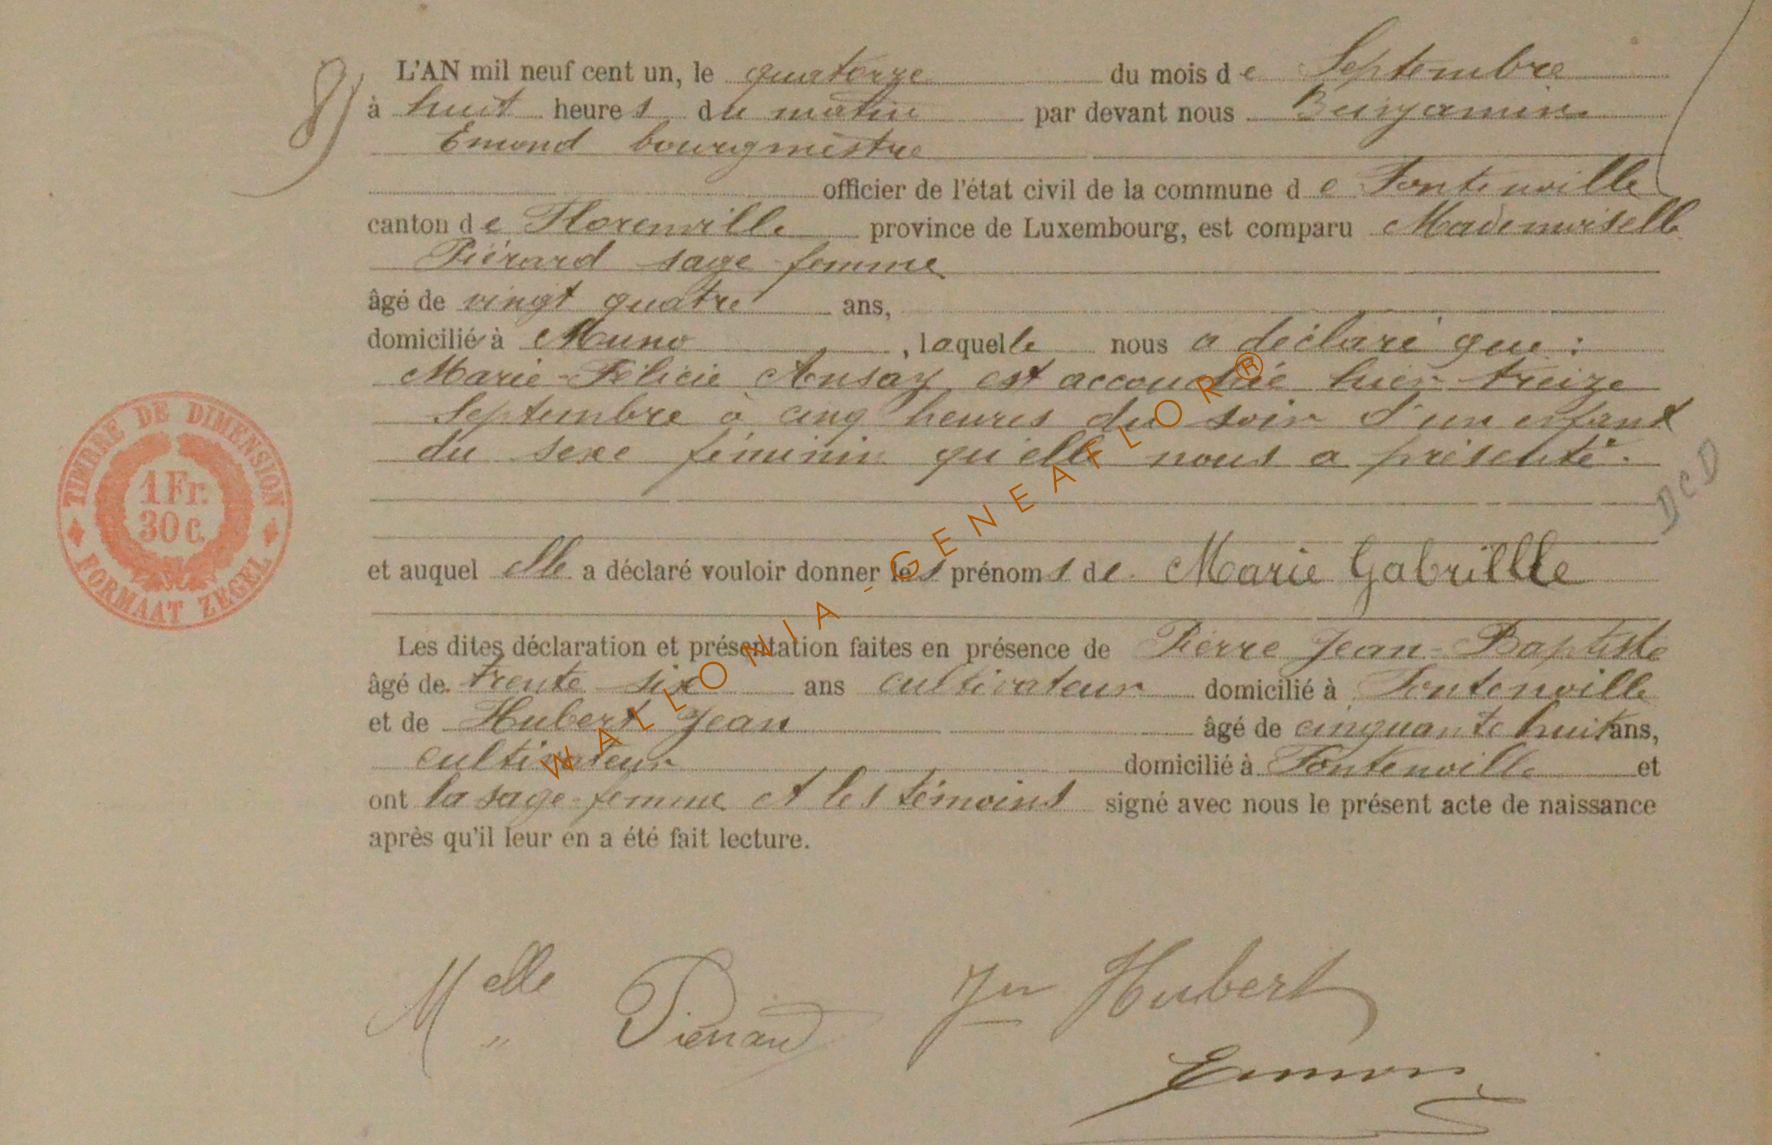 8)
L'AN mil neuf cent un, le quatorze du mois de Septembre
à huit heures du matin par devant nous Benjamin
Emond bourgmestre
officier de l'état civil de la commune de Fontenoille
canton de Florenville province de Luxembourg, est comparu Mademoiselle
Piérard sage-femme
âgé de vingt quatre ans,
domicilié à Muno, laquelle nous a déclaré que :
Marie-Félicie Ansay est accouchée hier treize
Septembre à cinq heures du soir d'un enfant
du sexe féminin qu'elle nous a présenté.
DCD
et auquel elle a déclaré vouloir donner les prénoms de Marie Gabrielle
Les dites déclaration et présentation faites en présence de Pierre Jean-Baptiste
âgé de trente six ans cultivateur domicilié à Fontenoille
et de Hubert Jean âgé de cinquante huit ans,
cultivateur domicilié à Fontenoille et
ont la sage-femme et les témoins signé avec nous le présent acte de naissance
après qu'il leur en a été fait lecture.
TIMBRE DE DIMENSION
1 Fr.
30 c.
FORMAAT ZEGEL
WALLONIA-GENEAFLOR®
Melle Piérard Jn Hubert
Emond